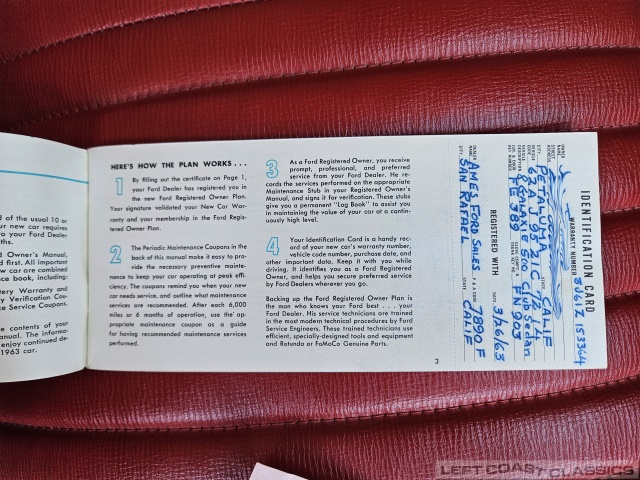 d of the usual 10 or
ur new car requires
o your Ford Dealer
ths.
d Owner's Manual,
d first. All important
ew car are combined
nce book, including:
tery Warranty and
y Verification Cou-
e Service Coupons.
e contents of your
anual. The informa-
enjoy continued de-
1963 car.
HERE'S HOW THE PLAN WORKS . . .
1 By filling out the certificate on Page 1,
your Ford Dealer has registered you in
the new Ford Registered Owner Plan.
Your signature validated your New Car War-
ranty and your membership in the Ford Regis-
tered Owner Plan.
2 The Periodic Maintenance Coupons in the
back of this manual make it easy to pro-
vide the necessary preventive mainte-
nance to keep your car operating at peak effi-
ciency. The coupons remind you when your car
needs service, and outline what maintenance
services are recommended. After each 6,000
miles or 6 months of operation, use the ap-
propriate maintenance coupon as a guide
for having recommended maintenance services
performed.
3 As a Ford Registered Owner, you receive
prompt, professional, and preferred
service from your Ford Dealer. He re-
cords the services performed on the appropriate
Maintenance Stub in your Registered Owner's
Manual, and signs it for verification. These stubs
give you a permanent "Log Book" to assist you
in maintaining the value of your car at a contin-
uously high level.
4 Your Identification Card is a handy rec-
ord of your new car's warranty number,
vehicle code number, purchase date, and
other important data. Keep it with you while
driving. It identifies you as a Ford Registered
Owner, and helps you secure preferred service
by Ford Dealers wherever you go.
Backing up the Ford Registered Owner Plan is
the man who knows your Ford best . . . your
Ford Dealer. His service technicians are trained
in the most modern technical procedures by Ford
Service Engineers. These trained technicians use
efficient, specially-designed tools and equipment
and Rotunda or FoMoCo Genuine Parts.
3
IDENTIFICATION CARD
WARRANTY NUMBER 3J61Z 153364
OWNER
STREET
ADDRESS
CITY PETALUMA STATE CALIF
GALAXIE 500 Club Sedan
REGISTERED WITH DATE 3/26/63
DEALER
NAME AMES FORD SALES P & A CODE 7890 F
CITY SAN RAFAEL STATE CALIF
LEFT COAST CLASSICS